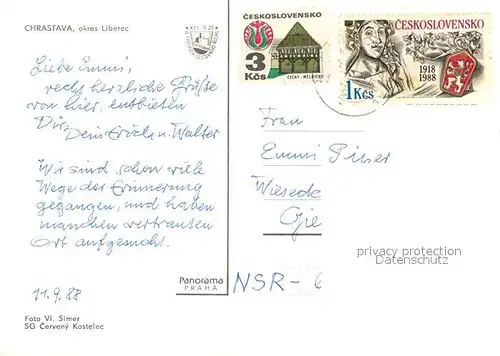 CHRASTAVA, okres Liberec
Kčs 0,20
Liebe Emmi,
recht herzliche Grüße
von hier, entbieten
Dir,
Dein Erich u. Walter
Wir sind schon viele
Wege der Erinnerung
gegangen, und haben
manchen vertrauten
Ort aufgesucht.
11.9.88
Foto Vl. Simer
SG Červený Kostelec
Panorama
PRAHA
ČESKOSLOVENSKO
3
Kčs
ČECHY - MĚLNICKO
ČESKOSLOVENSKO
1918
1988
1 Kčs
Frau
Emmi
Wieseck
privacy protection
Datenschutz
NSR-6